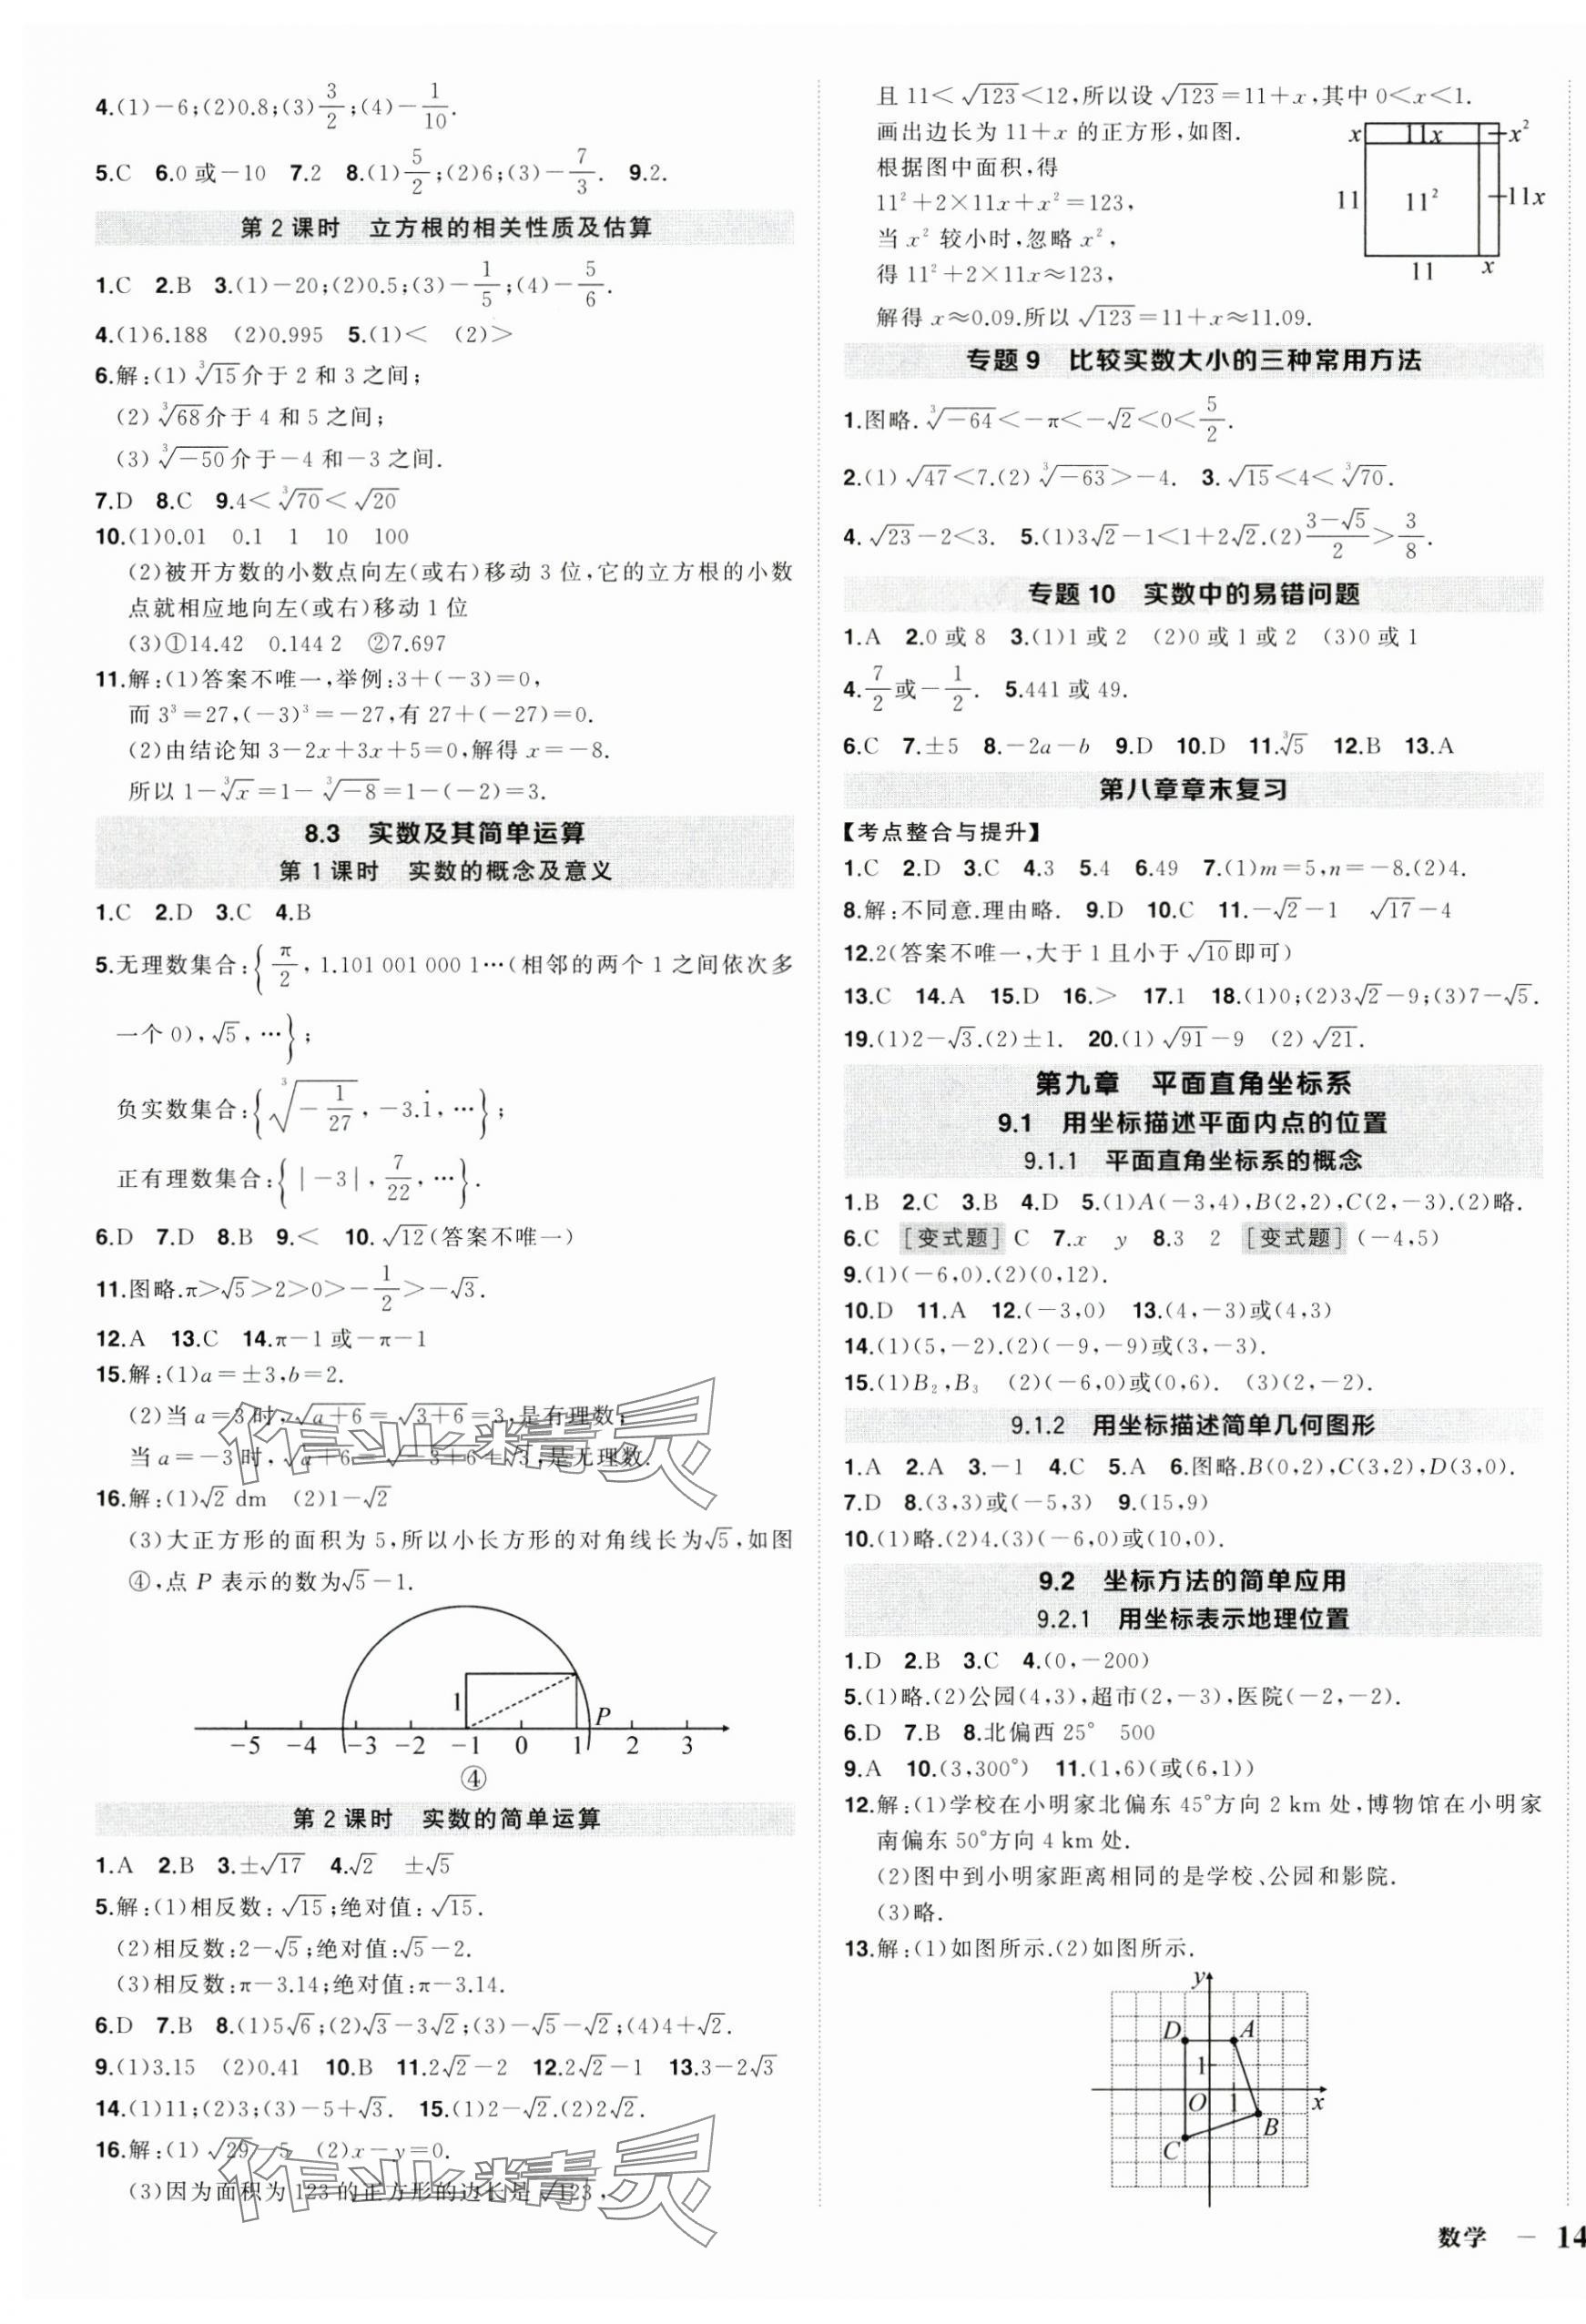 4.(1)-6;(2)0.8;(3)3/2;(4)-1/10.
5.C 6.0或-10 7.2 8.(1)5/2;(2)6;(3)-7/3. 9.2.
第2课时 立方根的相关性质及估算
1.C 2.B 3.(1)-20;(2)0.5;(3)-1/5;(4)-5/6.
4.(1)6.188 (2)0.995 5.(1)< (2)>
6.解:(1)∛15介于2和3之间;
(2)∛68介于4和5之间;
(3)∛-50介于-4和-3之间.
7.D 8.C 9.4<∛70<√20
10.(1)0.01 0.1 1 10 100
(2)被开方数的小数点向左(或右)移动3位,它的立方根的小数
点就相应地向左(或右)移动1位
(3)①14.42 0.144 2 ②7.697
11.解:(1)答案不唯一,举例:3+(-3)=0,
而3³=27,(-3)³=-27,有27+(-27)=0.
(2)由结论知3-2x+3x+5=0,解得x=-8.
所以1-∛x=1-∛-8=1-(-2)=3.
8.3 实数及其简单运算
第1课时 实数的概念及意义
1.C 2.D 3.C 4.B
5.无理数集合:{π/2,1.101 001 000 1…(相邻的两个1之间依次多
一个0),√5,…};
负实数集合:{∛(-1/27),-3.i̇,…};
正有理数集合:{|-3|,7/22,…}.
6.D 7.D 8.B 9.< 10.√12(答案不唯一)
11.图略.π>√5>2>0>-1/2>-√3.
12.A 13.C 14.π-1或-π-1
15.解:(1)a=±3,b=2.
(2)当a=3时,√(a+6)=√(3+6)=3,是有理数;
当a=-3时,√(a+6)=√(-3+6)=√3,是无理数.
16.解:(1)√2 dm (2)1-√2
(3)大正方形的面积为5,所以小长方形的对角线长为√5,如图
④,点P表示的数为√5-1.
1 P
-5 -4 -3 -2 -1 0 1 2 3
④
第2课时 实数的简单运算
1.A 2.B 3.±√17 4.√2 ±√5
5.解:(1)相反数:√15;绝对值:√15.
(2)相反数:2-√5;绝对值:√5-2.
(3)相反数:π-3.14;绝对值:π-3.14.
6.D 7.B 8.(1)5√6;(2)√3-3√2;(3)-√5-√2;(4)4+√2.
9.(1)3.15 (2)0.41 10.B 11.2√2-2 12.2√2-1 13.3-2√3
14.(1)11;(2)3;(3)-5+√3. 15.(1)2-√2.(2)2√2.
16.解:(1)√29-5 (2)x-y=0.
(3)因为面积为123的正方形的边长是√123,
作业精灵
作业精灵
且11<√123<12,所以设√123=11+x,其中0<x<1.
画出边长为11+x的正方形,如图.
根据图中面积,得
11²+2×11x+x²=123,
当x²较小时,忽略x²,
得11²+2×11x≈123,
解得x≈0.09.所以√123=11+x≈11.09.
x 11x x²
11 11² 11x
11 x
专题9 比较实数大小的三种常用方法
1.图略.∛-64<-π<-√2<0<5/2.
2.(1)√47<7.(2)∛-63>-4. 3.√15<4<∛70.
4.√23-2<3. 5.(1)3√2-1<1+2√2.(2)(3-√5)/2>3/8.
专题10 实数中的易错问题
1.A 2.0或8 3.(1)1或2 (2)0或1或2 (3)0或1
4.7/2或-1/2. 5.441或49.
6.C 7.±5 8.-2a-b 9.D 10.D 11.∛5 12.B 13.A
第八章章末复习
【考点整合与提升】
1.C 2.D 3.C 4.3 5.4 6.49 7.(1)m=5,n=-8.(2)4.
8.解:不同意.理由略. 9.D 10.C 11.-√2-1 √17-4
12.2(答案不唯一,大于1且小于√10即可)
13.C 14.A 15.D 16.> 17.1 18.(1)0;(2)3√2-9;(3)7-√5.
19.(1)2-√3.(2)±1. 20.(1)√91-9 (2)√21.
第九章 平面直角坐标系
9.1 用坐标描述平面内点的位置
9.1.1 平面直角坐标系的概念
1.B 2.C 3.B 4.D 5.(1)A(-3,4),B(2,2),C(2,-3).(2)略.
6.C [变式题] C 7.x y 8.3 2 [变式题] (-4,5)
9.(1)(-6,0).(2)(0,12).
10.D 11.A 12.(-3,0) 13.(4,-3)或(4,3)
14.(1)(5,-2).(2)(-9,-9)或(3,-3).
15.(1)B₂,B₃ (2)(-6,0)或(0,6). (3)(2,-2).
9.1.2 用坐标描述简单几何图形
1.A 2.A 3.-1 4.C 5.A 6.图略.B(0,2),C(3,2),D(3,0).
7.D 8.(3,3)或(-5,3) 9.(15,9)
10.(1)略.(2)4.(3)(-6,0)或(10,0).
9.2 坐标方法的简单应用
9.2.1 用坐标表示地理位置
1.D 2.B 3.C 4.(0,-200)
5.(1)略.(2)公园(4,3),超市(2,-3),医院(-2,-2).
6.D 7.B 8.北偏西25° 500
9.A 10.(3,300°) 11.(1,6)(或(6,1))
12.解:(1)学校在小明家北偏东45°方向2 km处,博物馆在小明家
南偏东50°方向4 km处.
(2)图中到小明家距离相同的是学校、公园和影院.
(3)略.
13.解:(1)如图所示.(2)如图所示.
y
D A
1
O 1 x
B
C
数学 - 14